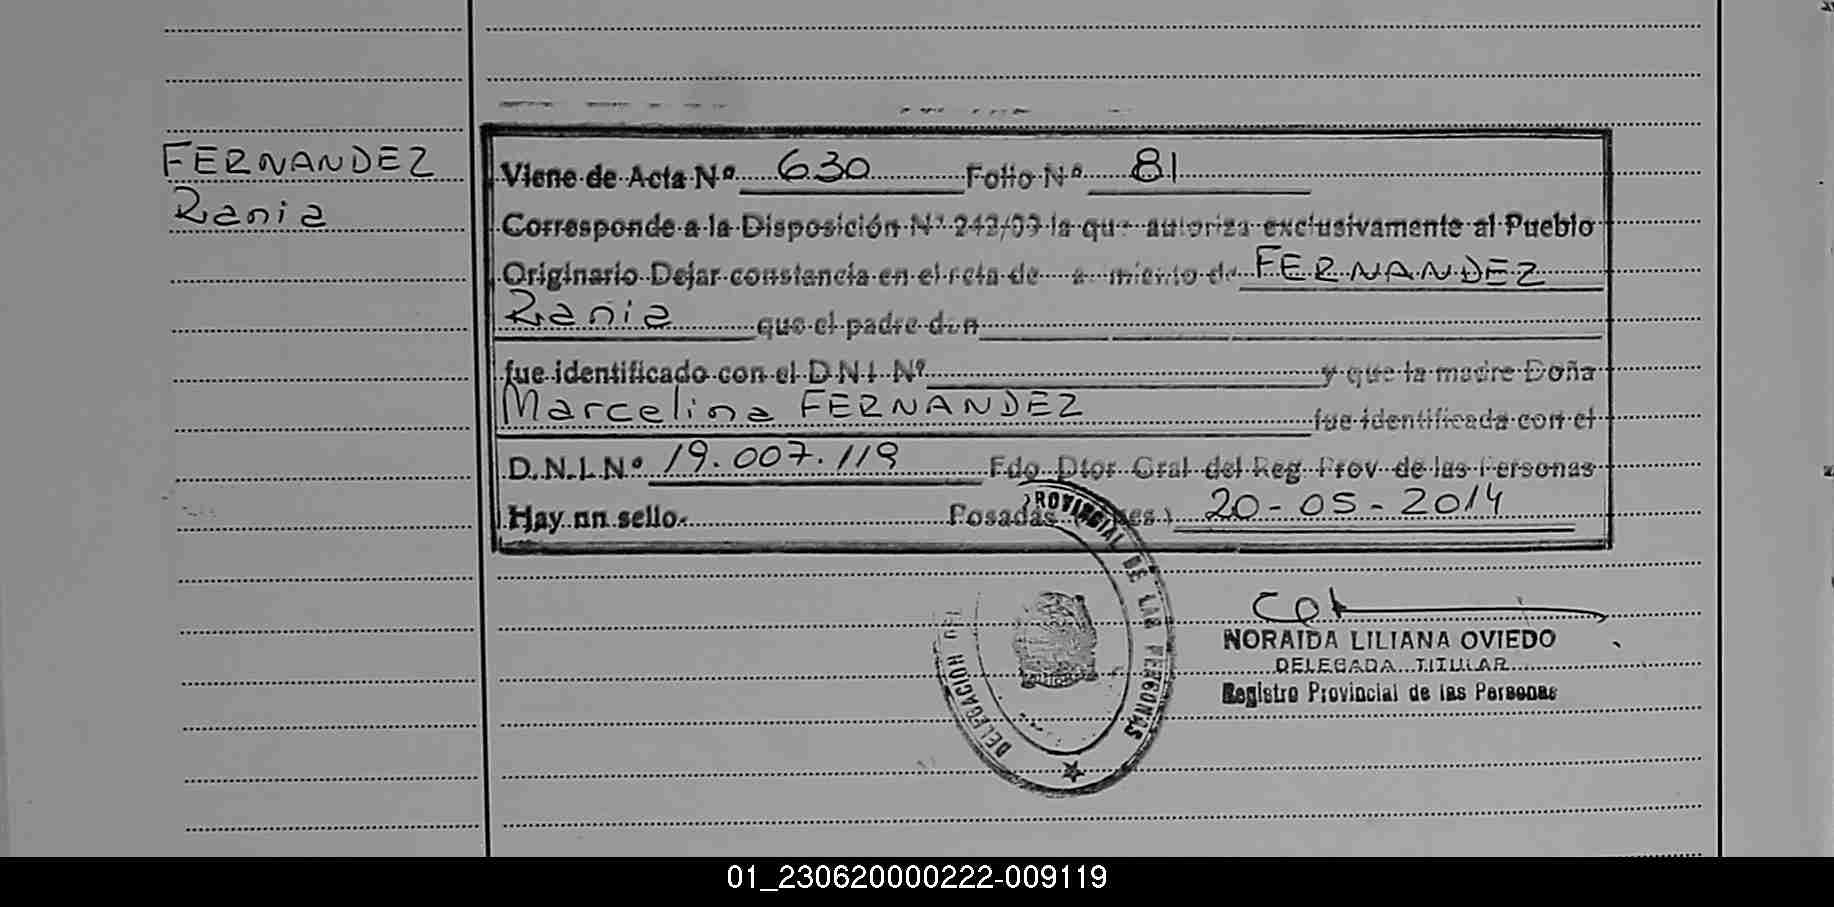 FERNANDEZ
Rania
Viene de Acta Nº 630 Folio Nº 81
Corresponde a la Disposición Nº 243/09 la que autoriza exclusivamente al Pueblo
Originario Dejar constancia en el acta de nacimiento de FERNANDEZ
Rania que el padre don
fue identificado con el D.N.I. Nº y que la madre Doña
Marcelina FERNANDEZ fue identificada con el
D.N.I. Nº 19.007.119 Fdo Dtor Gral del Reg Prov de las Personas
Hay un sello. Posadas 20-05-2014
PROVINCIAL DE LAS PERSONAS
DELEGACION
NORAIDA LILIANA OVIEDO
DELEGADA TITULAR
Registro Provincial de las Personas
01_230620000222-009119